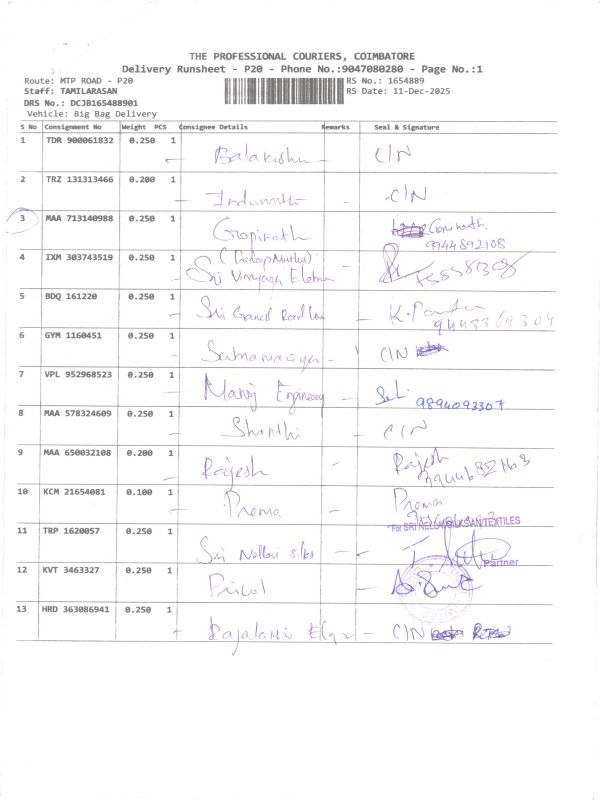 THE PROFESSIONAL COURIERS, COIMBATORE
Delivery Runsheet - P20 - Phone No.:9047080280 - Page No.:1
Route: MTP ROAD - P20 RS No.: 1654889
Staff: TAMILARASAN RS Date: 11-Dec-2025
DRS No.: DCJB165488901
Vehicle: Big Bag Delivery
S No Consignment No Weight PCS Consignee Details Remarks Seal & Signature
1 TDR 900061832 0.250 1
- Balakrishn - C/N
2 TRZ 131313466 0.200 1
- Indumathi - C/N
3 MAA 713140988 0.250 1
Gopinath Gopinath
9944892108
4 IXM 303743519 0.250 1
(Pradeep Muthu)
Sri Vinayaga -
5 BDQ 161220 0.250 1
- Sri Ganesh -
9443369304
6 GYM 1160451 0.250 1
- Subramaniya - C/N
7 VPL 952968523 0.250 1
- Manoj Engineering - 9894093307
8 MAA 578324609 0.250 1
- Shanthi - C/N
9 MAA 650032108 0.200 1
- Rajesh - Rajesh
10 KCM 21654081 0.100 1
- Prema - Prema
11 TRP 1620057 0.250 1
For SRI NELLAI SILKS AN TEXTILES
Sri Nellai silks -
Partner
12 KVT 3463327 0.250 1
- Pricol -
13 HRD 363086941 0.250 1
- Rajalaxmi - C/N